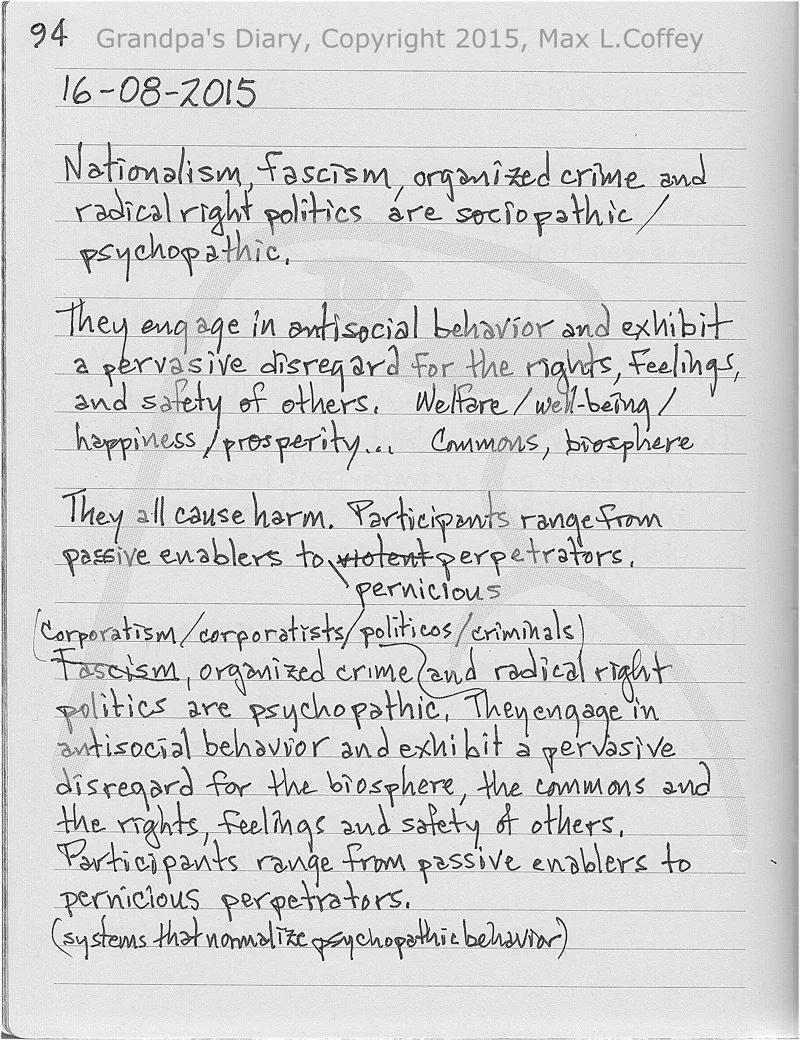 94 Grandpa's Diary, Copyright 2015, Max L.Coffey
16-08-2015
Nationalism, fascism, organized crime and
radical right politics are sociopathic /
psychopathic.
They engage in antisocial behavior and exhibit
a pervasive disregard for the rights, feelings,
and safety of others. Welfare / well-being /
happiness / prosperity... Commons, biosphere
They all cause harm. Participants range from
passive enablers to violent perpetrators.
pernicious
(Corporatism / corporatists / politicos / criminals)
Fascism, organized crime and radical right
politics are psychopathic. They engage in
antisocial behavior and exhibit a pervasive
disregard for the biosphere, the commons and
the rights, feelings and safety of others.
Participants range from passive enablers to
pernicious perpetrators.
(systems that normalize psychopathic behavior)